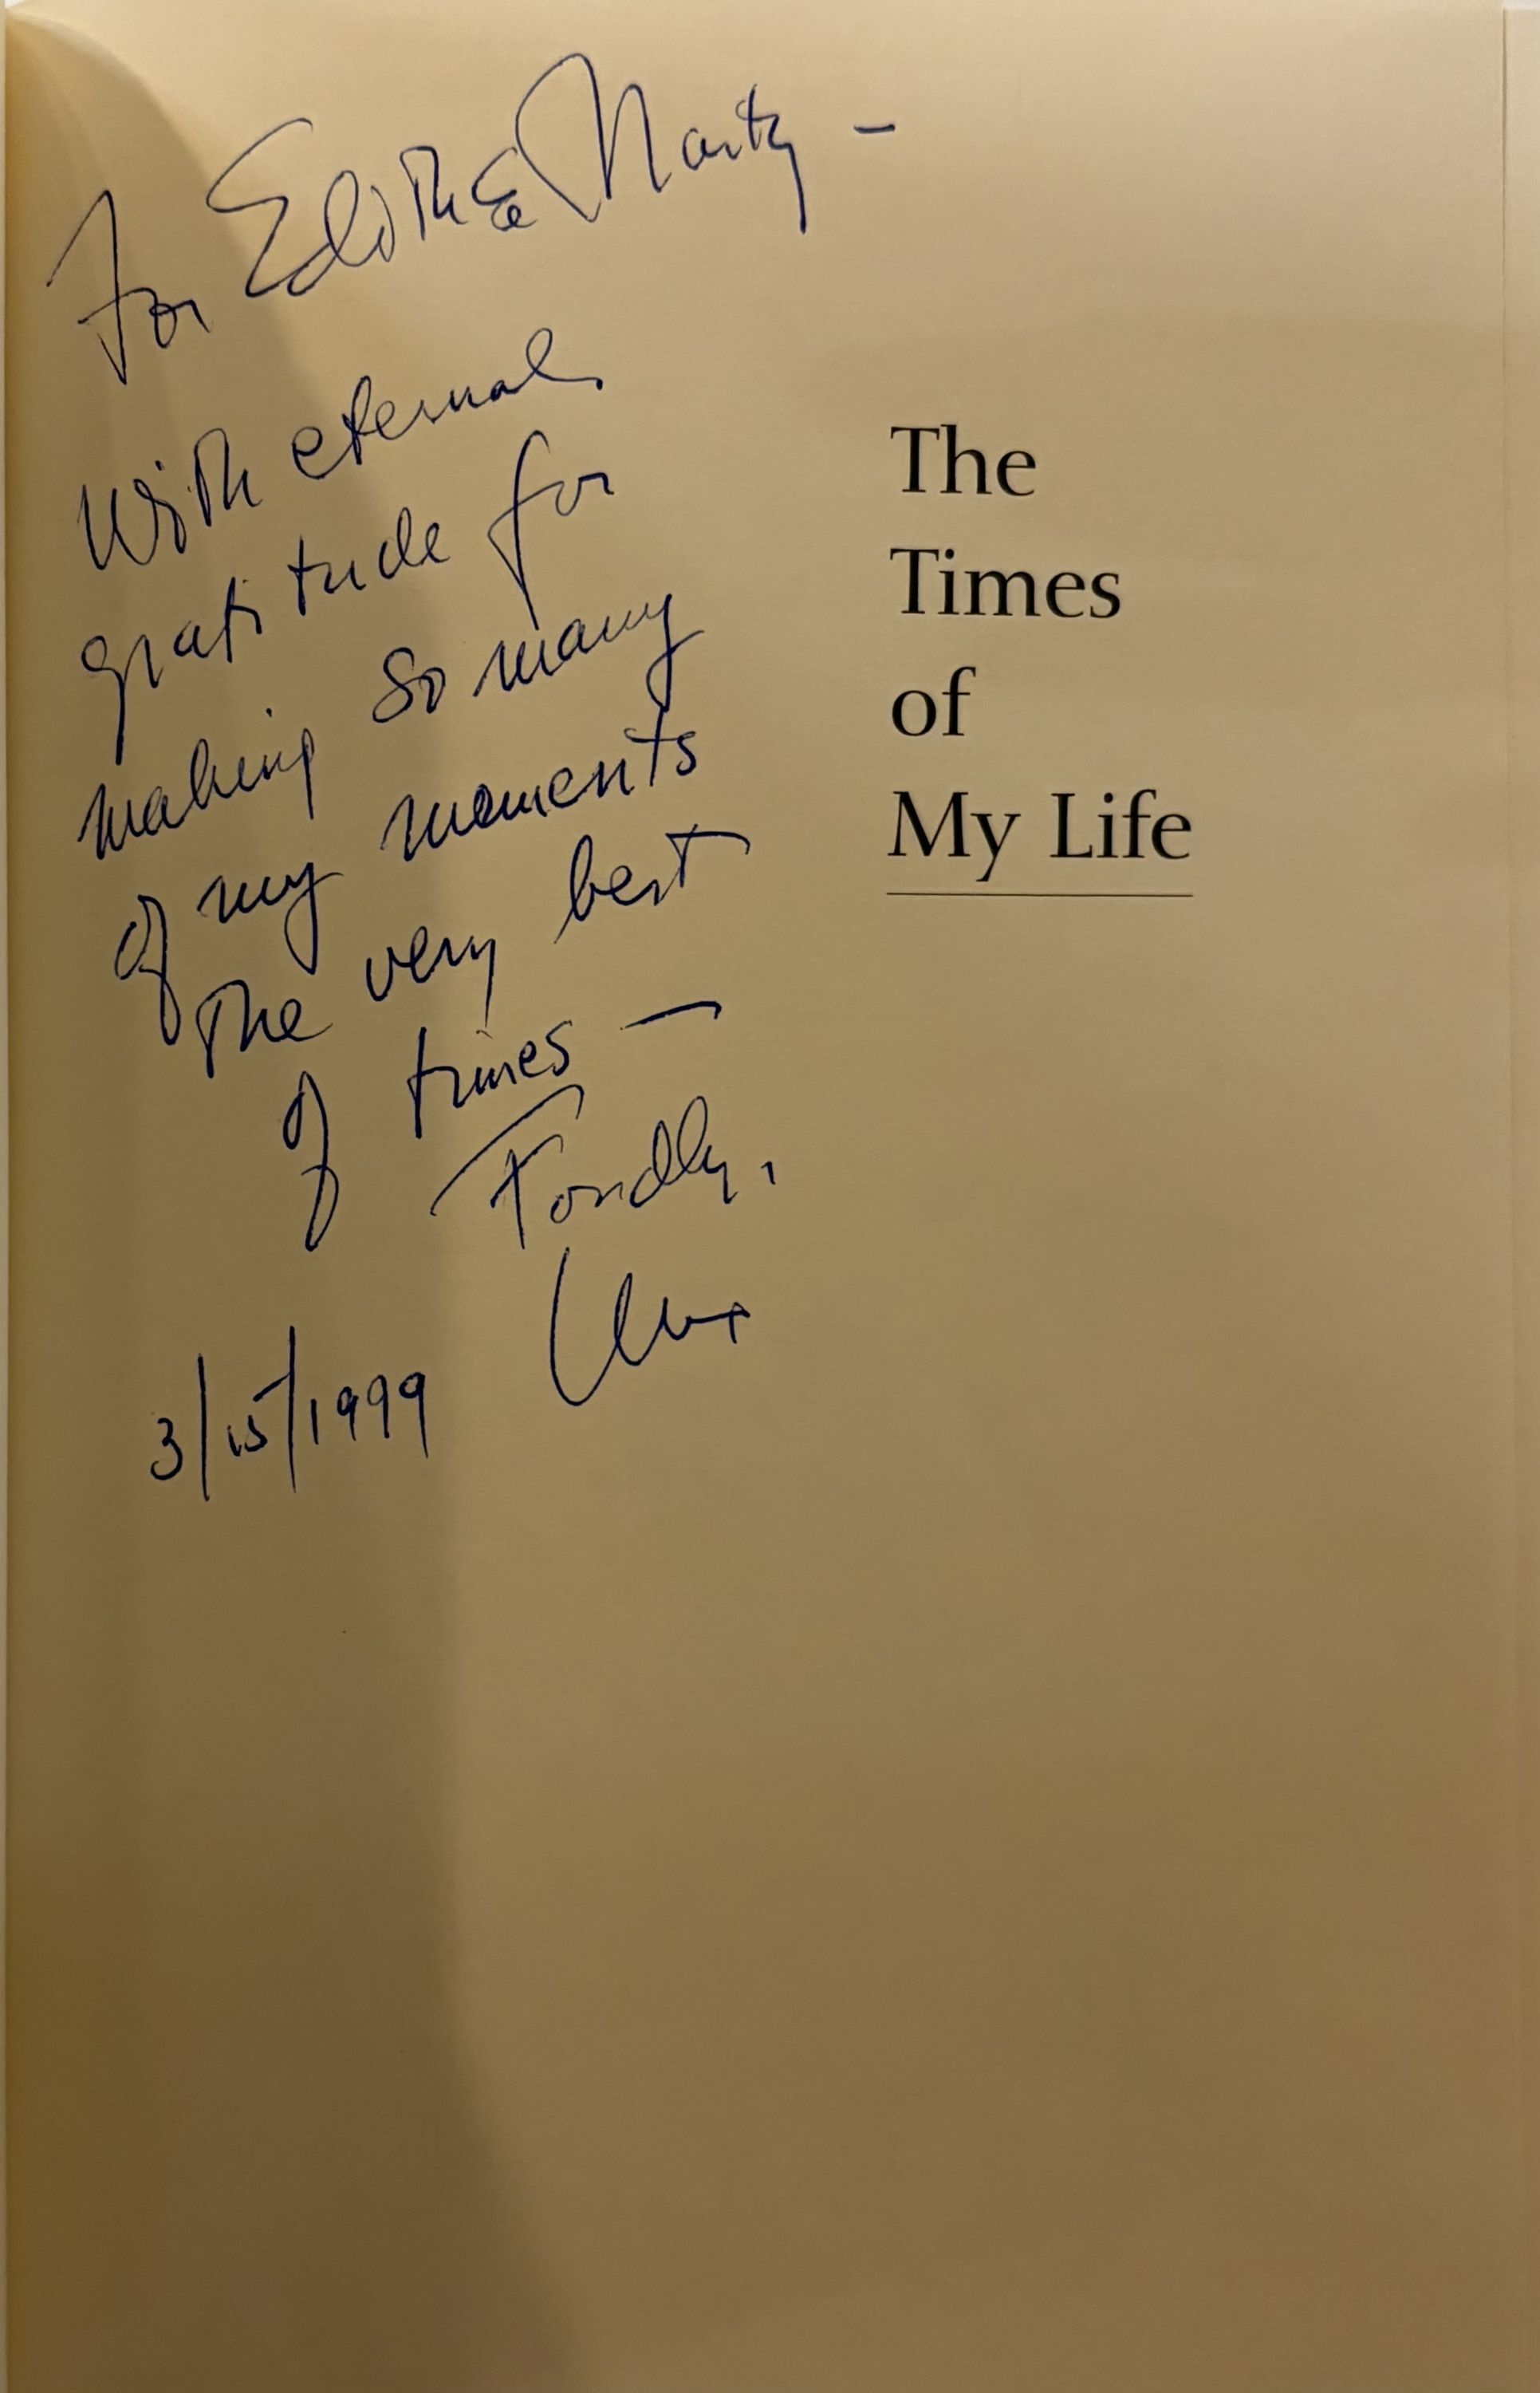 For Edith & Marty –
With eternal
gratitude for
making so many
of my moments
The very best
of times —
Fondly,
Max
3/15/1999
The
Times
of
My Life